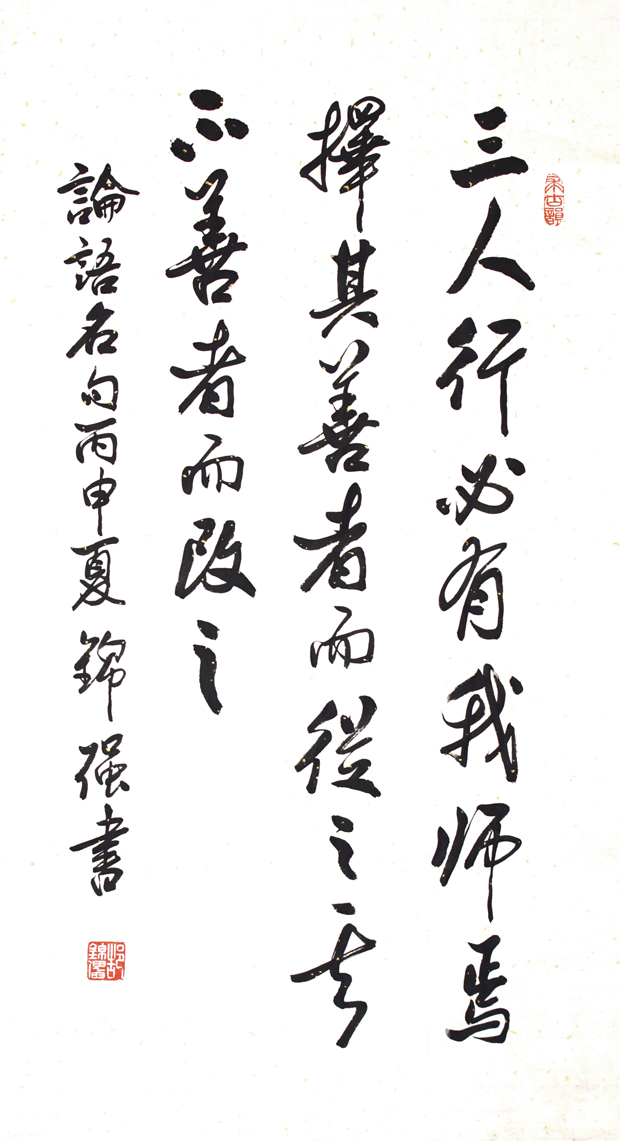 三人行必有我师焉
擇其善者而從之其
不善者而改之
論語名句丙申夏錦强書